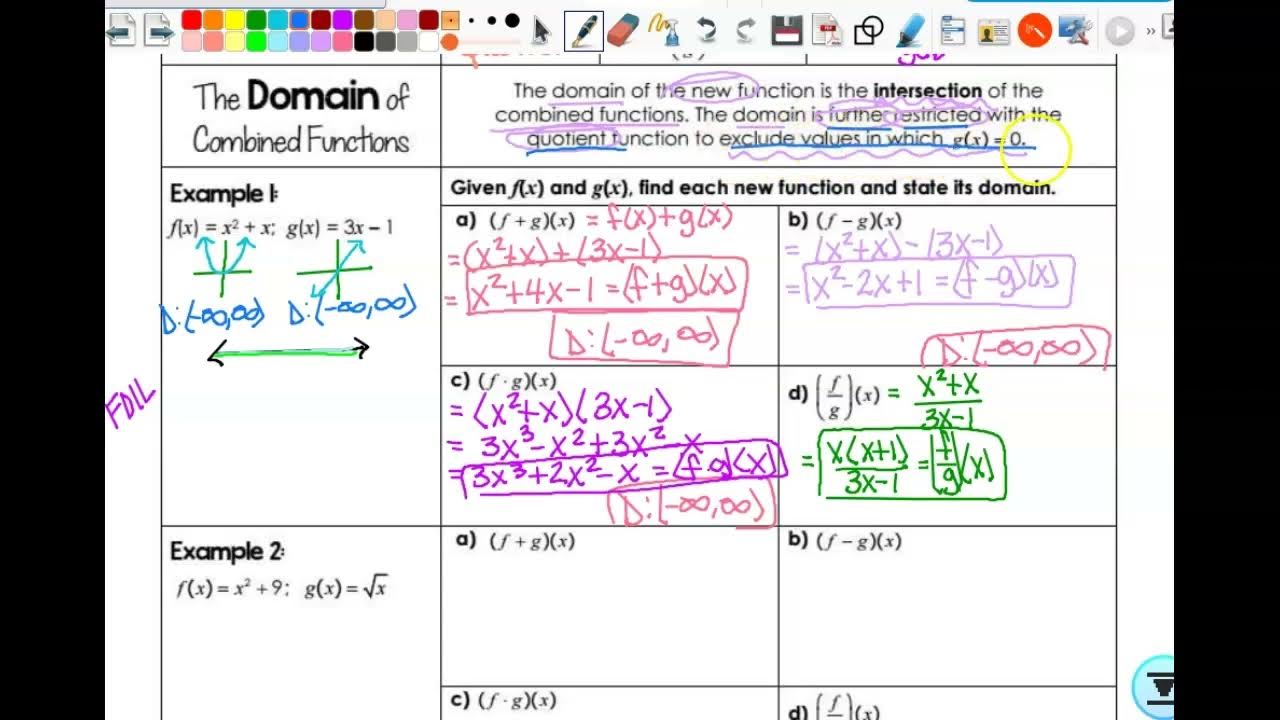 The Domain of
Combined Functions
The domain of the new function is the intersection of the
combined functions. The domain is further restricted with the
quotient function to exclude values in which g(x) = 0.
Example 1:
f(x) = x² + x; g(x) = 3x – 1
D: (-∞,∞) D: (-∞,∞)
Given f(x) and g(x), find each new function and state its domain.
a) (f + g)(x) = f(x)+g(x)
= (x²+x)+(3x-1)
= x²+4x-1 = (f+g)(x)
D: (-∞,∞)
b) (f – g)(x)
= (x²+x)-(3x-1)
= x²-2x+1 = (f-g)(x)
D: (-∞,∞)
FOIL
c) (f · g)(x)
= (x²+x)(3x-1)
= 3x³-x²+3x²-x
= 3x³+2x²-x = (f·g)(x)
D: (-∞,∞)
d) (f/g)(x) = x²+x/3x-1
= x(x+1)/3x-1 = (f/g)(x)
Example 2:
f(x) = x² + 9; g(x) = √x
a) (f + g)(x)
b) (f – g)(x)
c) (f · g)(x)
d) (f/g)(x)